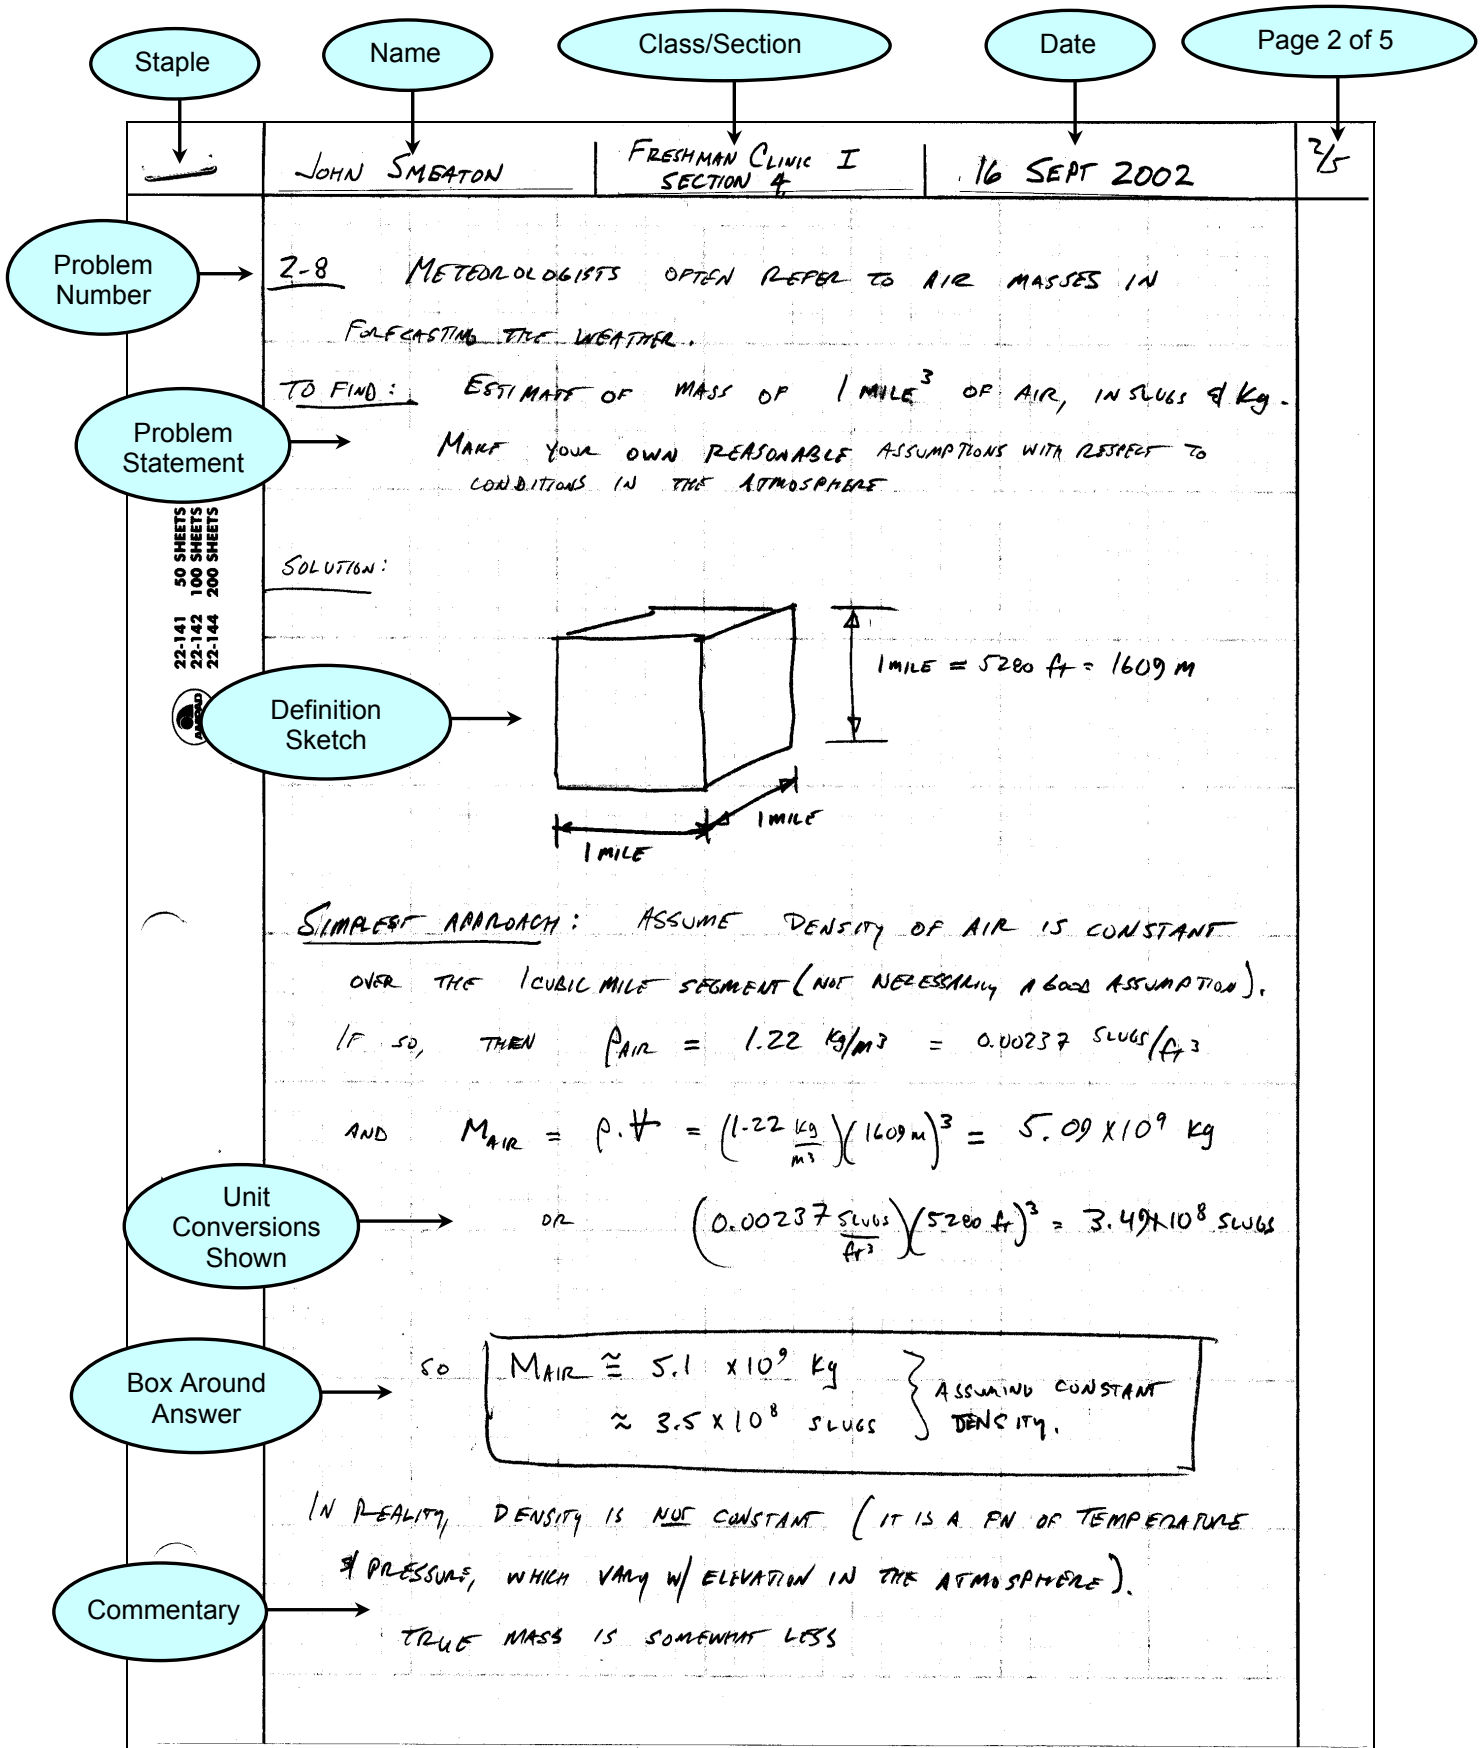 Staple
Name
Class/Section
Date
Page 2 of 5
JOHN SMEATON
FRESHMAN CLINIC I
SECTION 4
16 SEPT 2002
2/5
Problem
Number
2-8 METEOROLOGISTS OFTEN REFER TO AIR MASSES IN
FORECASTING THE WEATHER.
TO FIND: ESTIMATE OF MASS OF 1 MILE³ OF AIR, IN SLUGS & Kg.
Problem
Statement
MAKE YOUR OWN REASONABLE ASSUMPTIONS WITH RESPECT TO
CONDITIONS IN THE ATMOSPHERE
22-141 50 SHEETS
22-142 100 SHEETS
22-144 200 SHEETS
AMPAD
SOLUTION:
1 MILE = 5280 ft = 1609 m
Definition
Sketch
1 MILE
1 MILE
SIMPLEST APPROACH: ASSUME DENSITY OF AIR IS CONSTANT
OVER THE 1 CUBIC MILE SEGMENT (NOT NECESSARILY A GOOD ASSUMPTION).
IF SO, THEN ρAIR = 1.22 kg/m³ = 0.00237 SLUGS/ft³
AND MAIR = ρ.V = (1.22 kg/m³)(1609 m)³ = 5.09 X10⁹ kg
Unit
Conversions
Shown
OR (0.00237 SLUGS/ft³)(5280 ft)³ = 3.49X10⁸ SLUGS
Box Around
Answer
SO MAIR ≅ 5.1 X10⁹ Kg
≈ 3.5 X 10⁸ SLUGS } ASSUMING CONSTANT
DENSITY.
IN REALITY, DENSITY IS NOT CONSTANT (IT IS A FN OF TEMPERATURE
& PRESSURE, WHICH VARY W/ ELEVATION IN THE ATMOSPHERE).
Commentary
TRUE MASS IS SOMEWHAT LESS